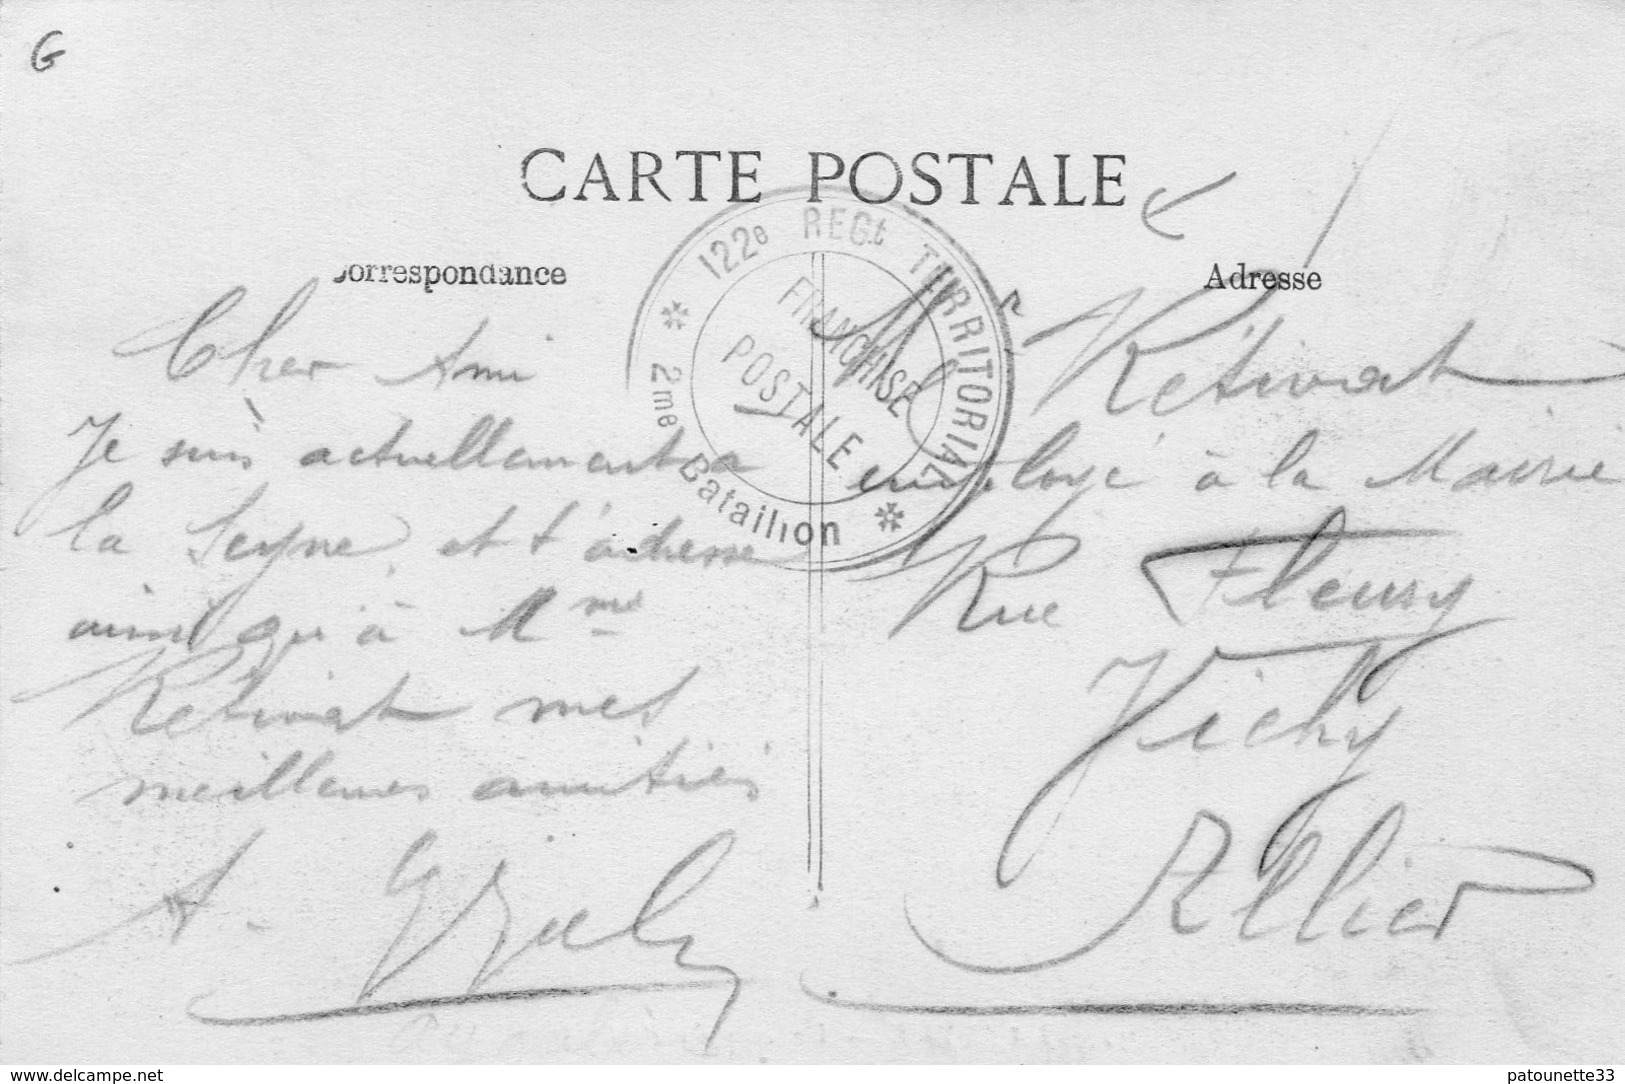 G
CARTE POSTALE
Correspondance
Adresse
122e REGt TERRITORIAL
FRANCHISE
POSTALE
* 2me Bataillon *
Cher Ami
Je suis actuellement a
la Seyne et t'adresse
ainsi qu'à Mme
Rétivat mes
meilleures amitiés
A.
Mr Rétivat
employé à la Mairie
Rue Fleury
Vichy
Allier
www.delcampe.net
patounette33